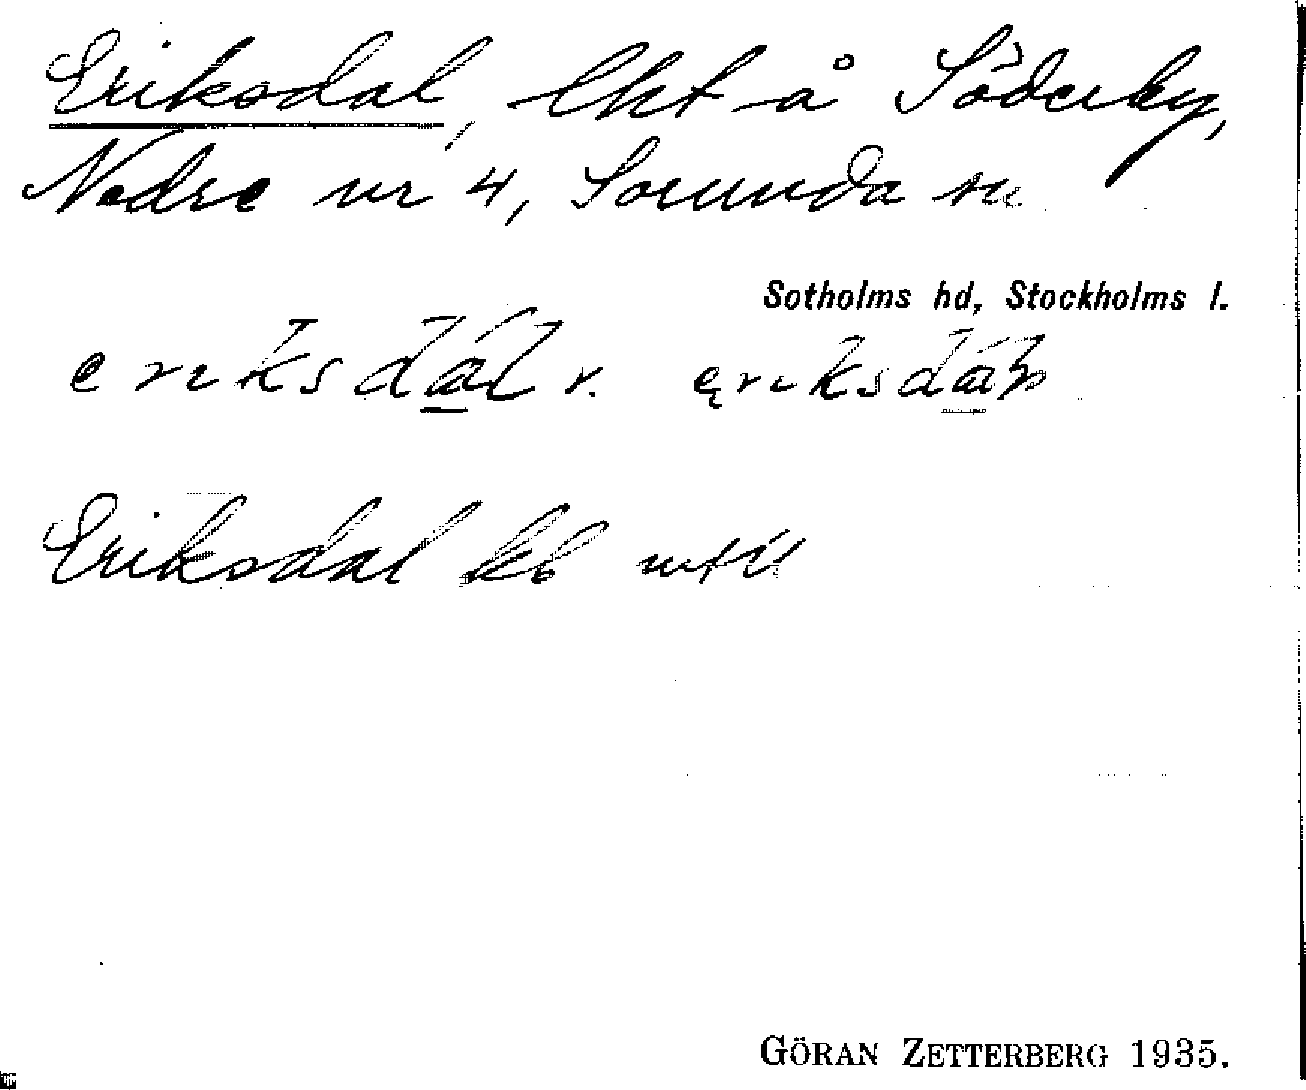 Eriksdal, lht å Söderby,
Nedre nr 4, Sorunda sn
Sotholms hd, Stockholms l.
eriksdal r. ęriksdaɫ
Eriksdal kb
GÖRAN ZETTERBERG 1935.